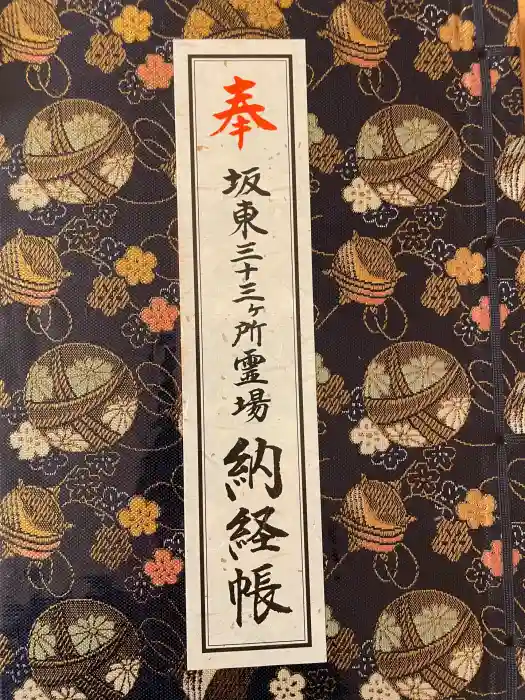 奉 坂東三十三ヶ所霊場 納経帳